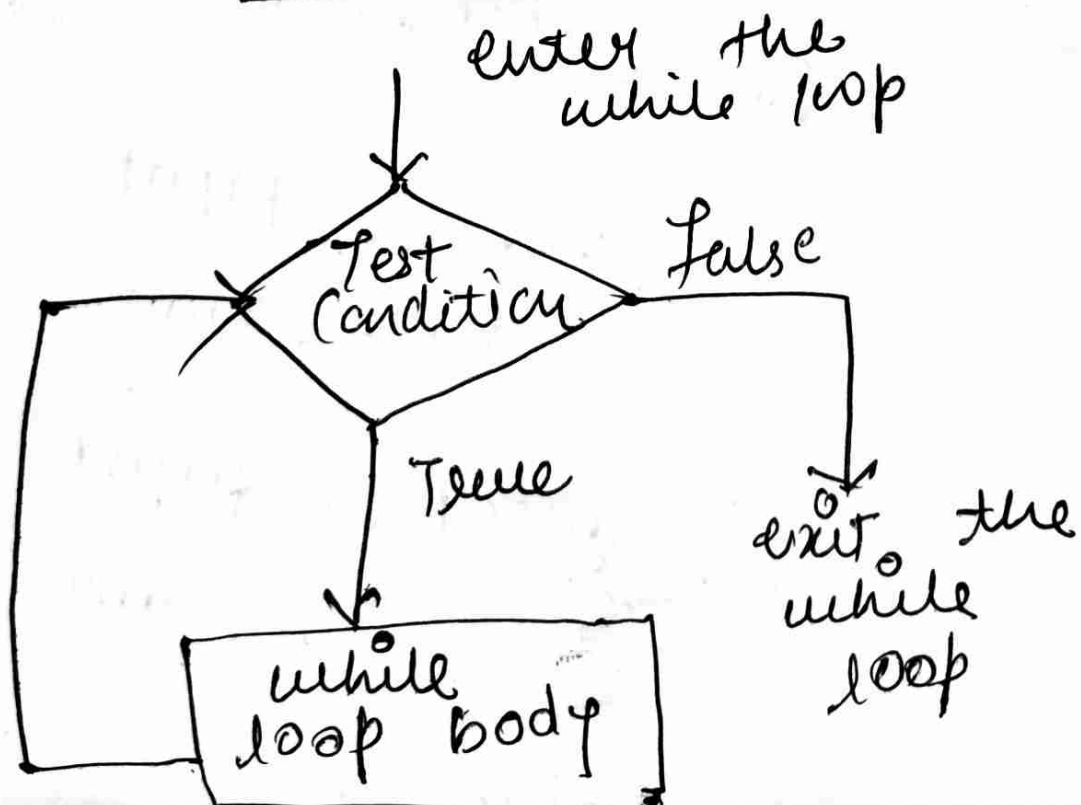 enter the
while loop
Test
Condition
False
True
exit the
while
loop
while
loop body